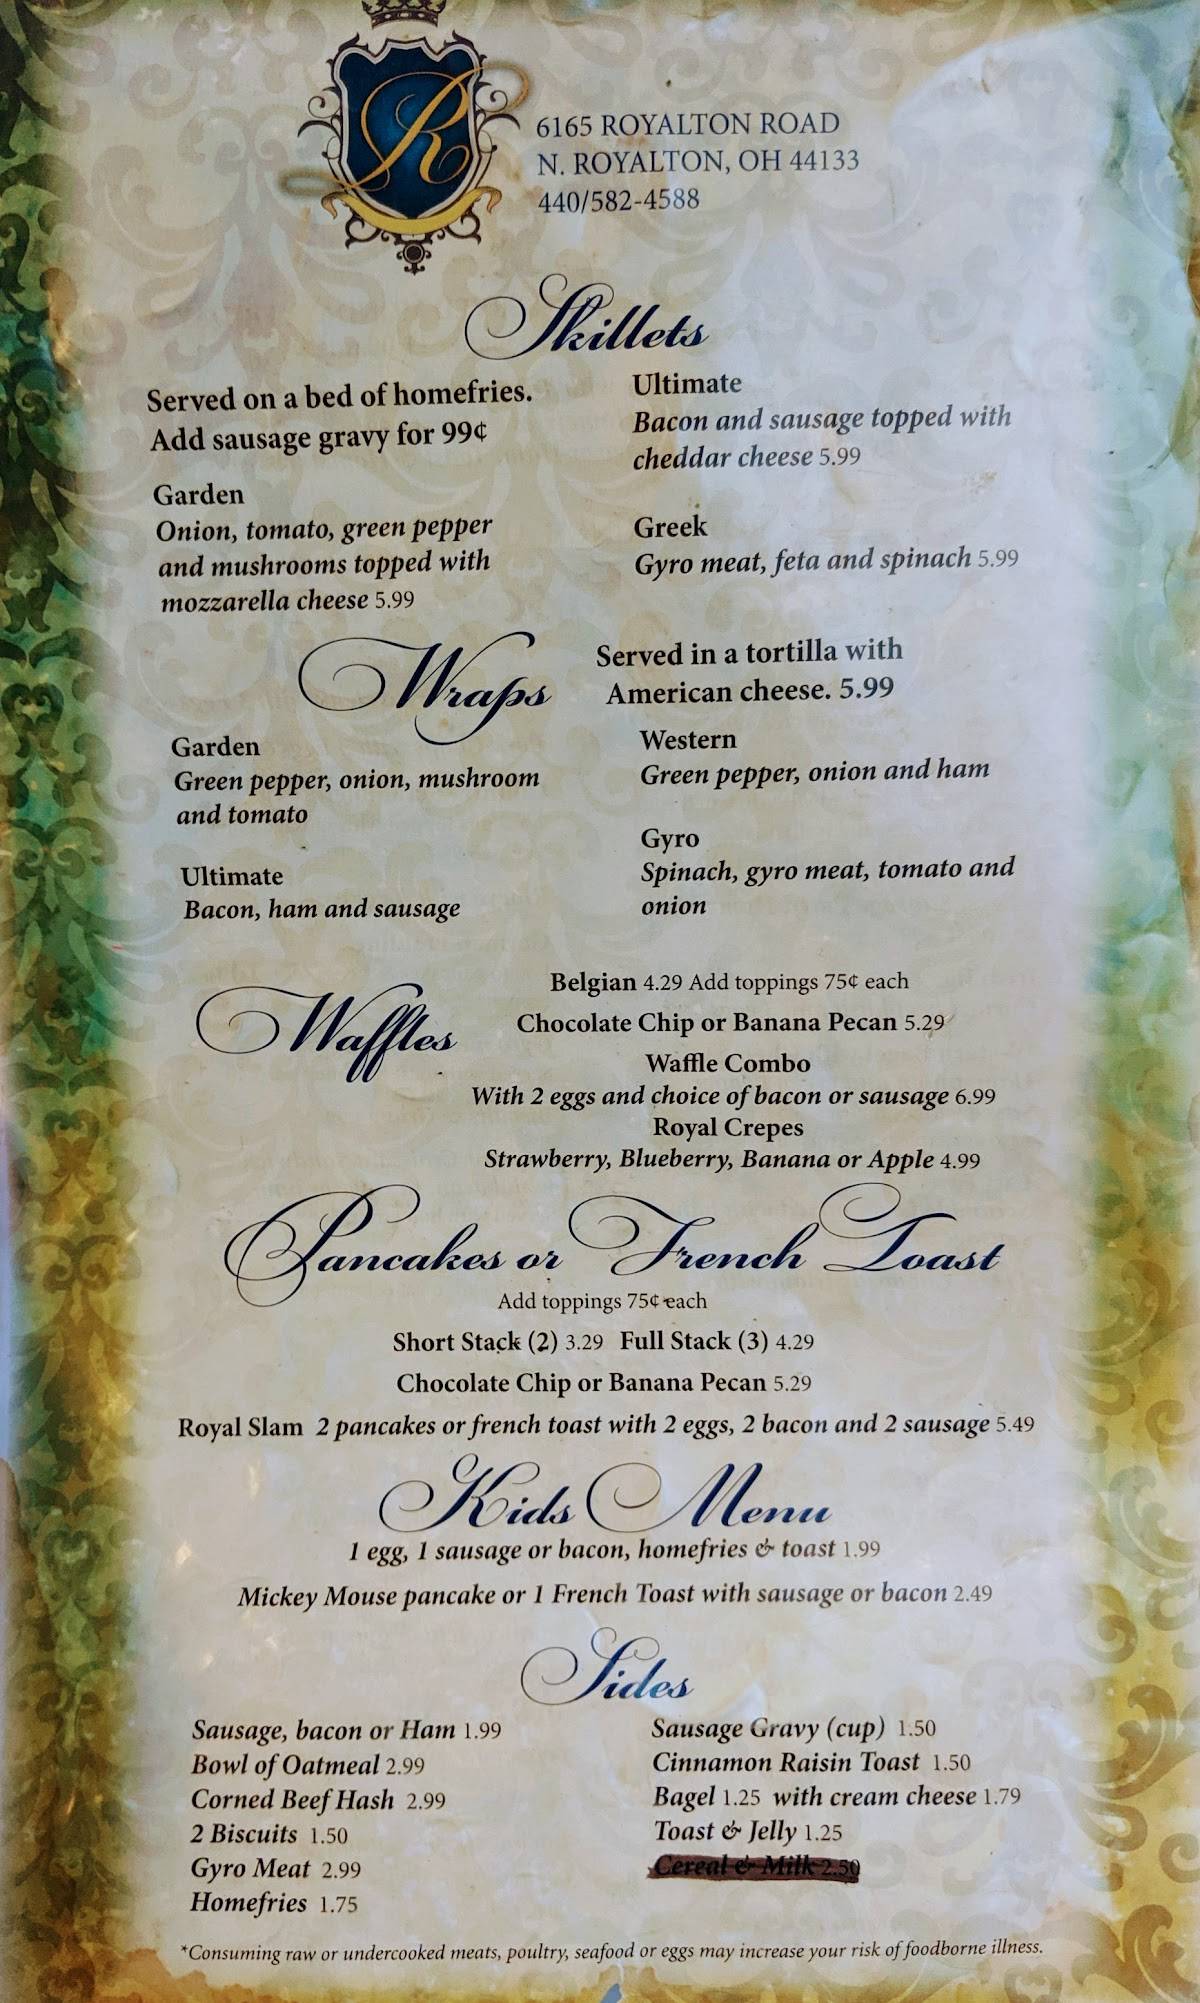 R
6165 ROYALTON ROAD
N. ROYALTON, OH 44133
440/582-4588
Skillets
Served on a bed of homefries.
Add sausage gravy for 99¢
Garden
Onion, tomato, green pepper
and mushrooms topped with
mozzarella cheese 5.99
Ultimate
Bacon and sausage topped with
cheddar cheese 5.99
Greek
Gyro meat, feta and spinach 5.99
Wraps
Served in a tortilla with
American cheese. 5.99
Garden
Green pepper, onion, mushroom
and tomato
Ultimate
Bacon, ham and sausage
Western
Green pepper, onion and ham
Gyro
Spinach, gyro meat, tomato and
onion
Waffles
Belgian 4.29 Add toppings 75¢ each
Chocolate Chip or Banana Pecan 5.29
Waffle Combo
With 2 eggs and choice of bacon or sausage 6.99
Royal Crepes
Strawberry, Blueberry, Banana or Apple 4.99
Pancakes or French Toast
Add toppings 75¢ each
Short Stack (2) 3.29 Full Stack (3) 4.29
Chocolate Chip or Banana Pecan 5.29
Royal Slam 2 pancakes or french toast with 2 eggs, 2 bacon and 2 sausage 5.49
Kids Menu
1 egg, 1 sausage or bacon, homefries & toast 1.99
Mickey Mouse pancake or 1 French Toast with sausage or bacon 2.49
Sides
Sausage, bacon or Ham 1.99
Bowl of Oatmeal 2.99
Corned Beef Hash 2.99
2 Biscuits 1.50
Gyro Meat 2.99
Homefries 1.75
Sausage Gravy (cup) 1.50
Cinnamon Raisin Toast 1.50
Bagel 1.25 with cream cheese 1.79
Toast & Jelly 1.25
Cereal & Milk 2.50
*Consuming raw or undercooked meats, poultry, seafood or eggs may increase your risk of foodborne illness.